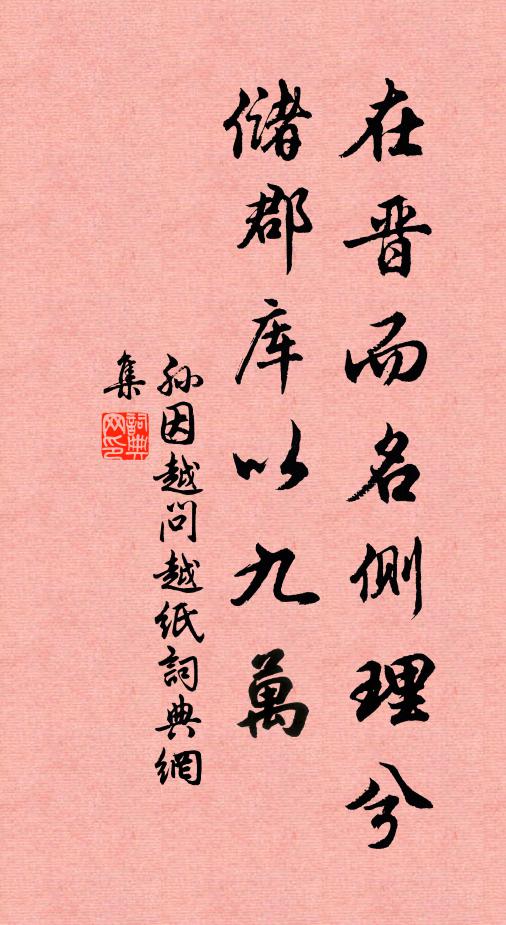 在晋而名侧理兮
储郡库以九萬
孙因越问越纸詞典網
集
詞典网印